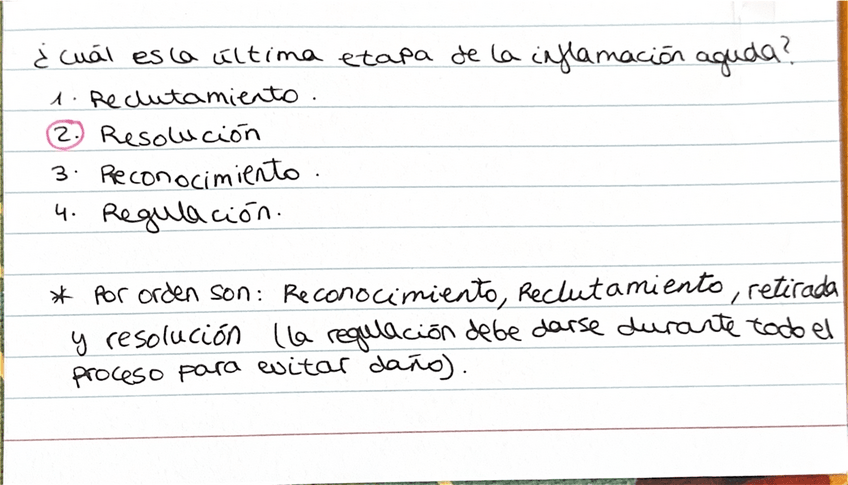 ¿Cuál es la última etapa de la inflamación aguda?
1. Reclutamiento.
2. Resolución
3. Reconocimiento.
4. Regulación.
* Por orden son: Reconocimiento, Reclutamiento, retirada
y resolución (la regulación debe darse durante todo el
proceso para evitar daño).